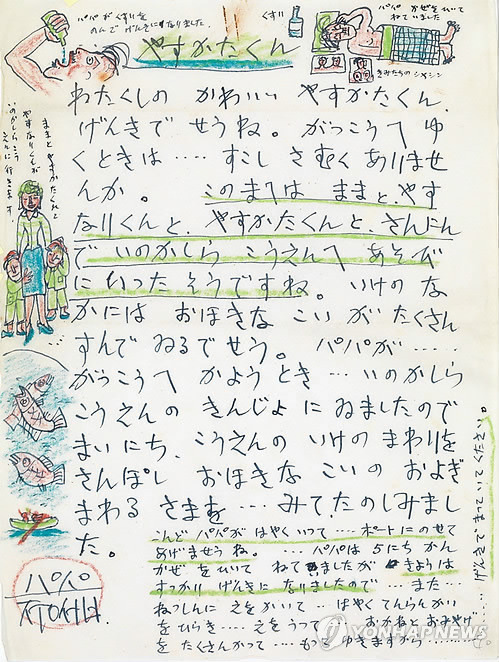 パパがくすりを
のんでげんきになりました。
くすり
パパ かぜをひいて
ねていました
きみたちのシャシン
やすかたくん
わたくしの かわいい やすかたくん。
げんきで せうね。がっこうへ ゆ
くときは‥‥ すこし さむく ありませ
んか。 このまへは ままと、やす
なりくんと、やすかたくんと、さんにん
で いのかしら こうえんへ あそび
に いった そうですね。いけの な
かには おほきな こい が たくさん
すんで ゐるでせう。 パパが‥‥
がっこうへ かよう とき‥‥ いのかしら
こうえんの きんじょ に ゐましたので
まいにち、こうえんの いけの まわりを
さんぽし おほきな こいの およぎ
まわる さまを‥‥ みて、たのしみまし
た。
こんど パパが はやく いつて‥‥ ボートに のせて
あげませうね。‥‥ パパは 5にち かん
かぜ を ひいて ねて ゐましたが きようは
すつかり げんきに なりましたので‥‥ また‥‥
ねっしんに えをかいて‥‥ はやく てんらんかい
をひらき‥‥ えを うつて おかねと おみやけ
を たくさん かつて‥‥ もつて ゆきますから
げんきで まつていてください。
ままと やすかたくんと
やすなりくんが
いのかしらこう
えんに 行きます
パパ
YONHAP NEWS